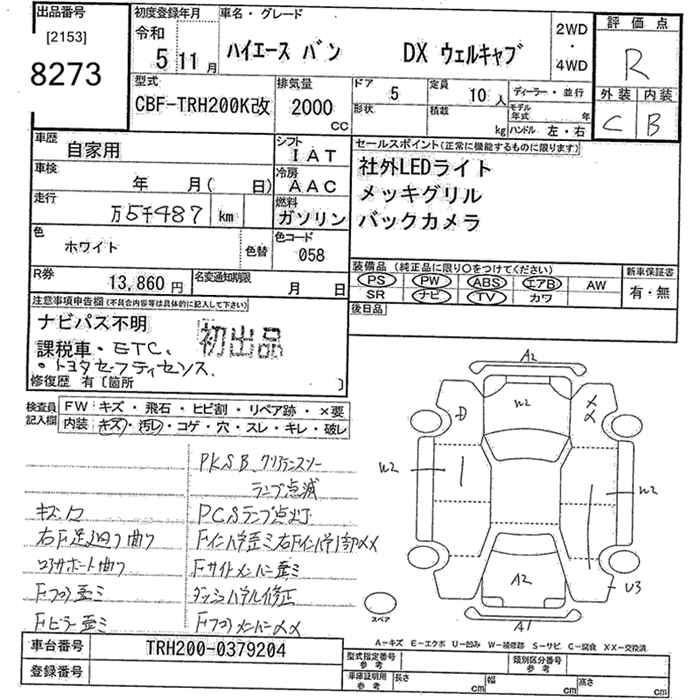 出品番号
[2153]
8273
初度登録年月
令和
5 11月
車名・グレード
ハイエース バン DX ウェルキャブ
2WD
・
4WD
評価点
R
外装 内装
C B
型式
CBF-TRH200K改
排気量
2000
cc
ドア
5
形状
定員
10人
積載
kg
ディーラー・並行
モデル
年式 年
ハンドル 左・右
車歴
自家用
シフト
IAT
車検
年 月( 日)
冷房
AAC
走行
万5千487 km
燃料
ガソリン
色
ホワイト
色替
色コード
058
R券
13,860円
名変通知期限
月 日
セールスポイント(正常に機能するものに限ります)
社外LEDライト
メッキグリル
バックカメラ
装備品(純正品に限り○をつけてください)
PS PW ABS エアB AW
SR ナビ TV カワ
新車保証書
有・無
後日品
注意事項申告欄(不具合内容等は具体的に記入して下さい)
ナビパス不明
課税車・ETC.
・トヨタセーフティセンス.
初出品
修復歴 有〔箇所 〕
検査員
記入欄
FW キズ・飛石・ヒビ割・リペア跡・×要
内装 キズ・汚レ・コゲ・穴・スレ・キレ・破レ
PKSB クリアランスソナー
ランプ点滅
キズ大
PCSランプ点灯
右F足廻り曲り
Fインパネ歪ミ右Fインパネ部××
コアサポート曲り
Fサイドメンバー歪ミ
Fフロア歪ミ
ダッシュパネル修正
Fピラー歪ミ
Fフロアメンバー××
A2
W2
D
××
W2
W2
A2
U3
A1
スペア
A−キズ E−エクボ U−凹み W−補修跡 S−サビ C−腐食 XX−交換済
車台番号
TRH200-0379204
登録番号
型式指定番号
参考
類別区分番号
参考
車庫証明用
参考
長さ cm
幅 cm
高さ cm